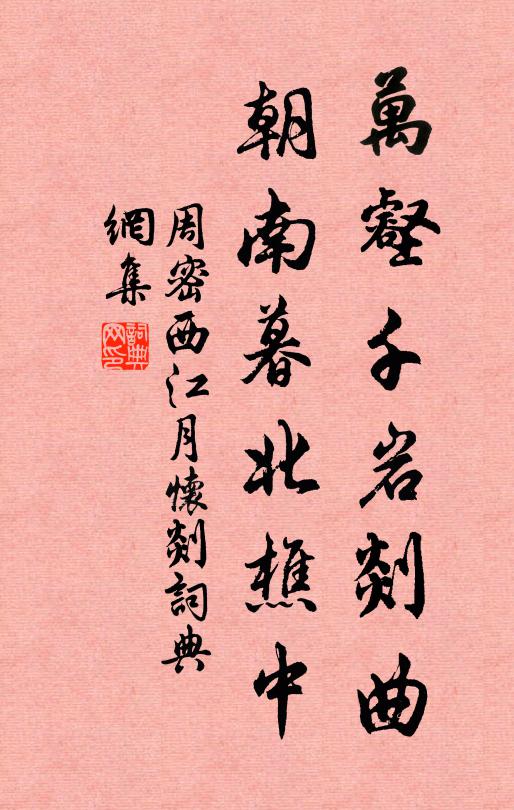 萬壑千岩剡曲
朝南暮北樵中
周密西江月懷剡詞典
網集
詞典
网印